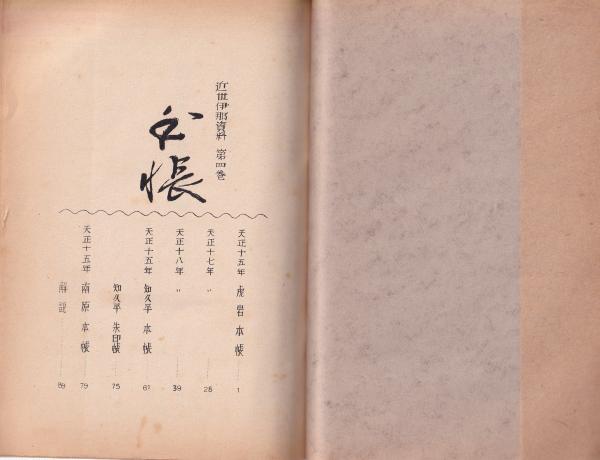 近世伊那資料 第四巻
本帳
天正十五年 虎岩本帳 1
天正十七年 〃 28
天正十八年 〃 39
天正十五年 知久平本帳 61
知久平朱印帳 75
天正十五年 南原本帳 79
解説 89